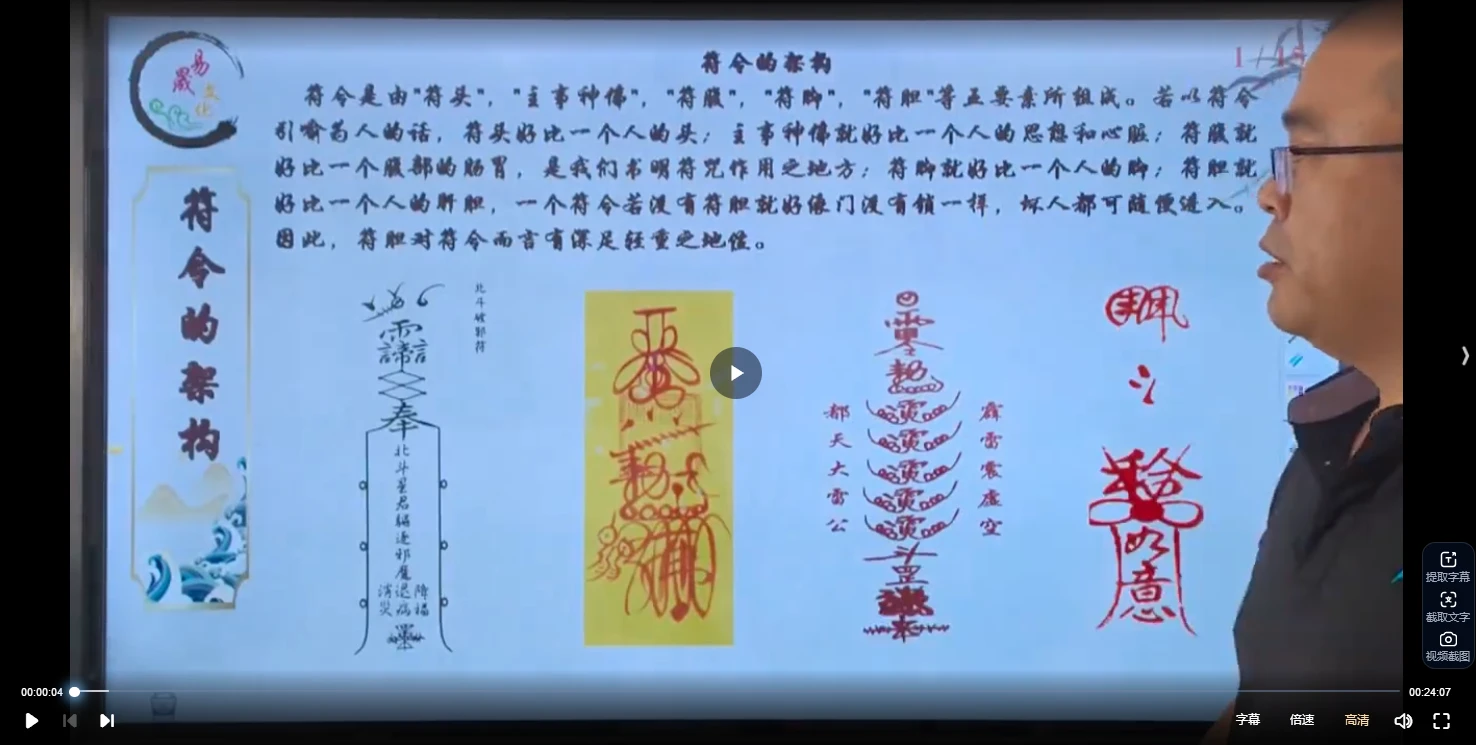 符令的架构
1/15
易
晟
文
化
符令是由"符头"，"主事神佛"，"符腹"，"符脚"，"符胆"等五要素所组成。若以符令
引喻为人的话，符头好比一个人的头；主事神佛就好比一个人的思想和心脏；符腹就
好比一个腹部的肠胃，是我们书明符咒作用之地方；符脚就好比一个人的脚；符胆就
好比一个人的肝胆，一个符令若没有符胆就好像门没有锁一样，坏人都可随便进入。
因此，符胆对符令而言有深足轻重之地位。
符令的架构
北斗破邪符
奉
北斗星君驱逐邪魔
消灾
退病
降福
都天大雷公
霹雷震虚空
如意
提取字幕
截取文字
视频截图
00:00:04
00:24:07
字幕
倍速
高清